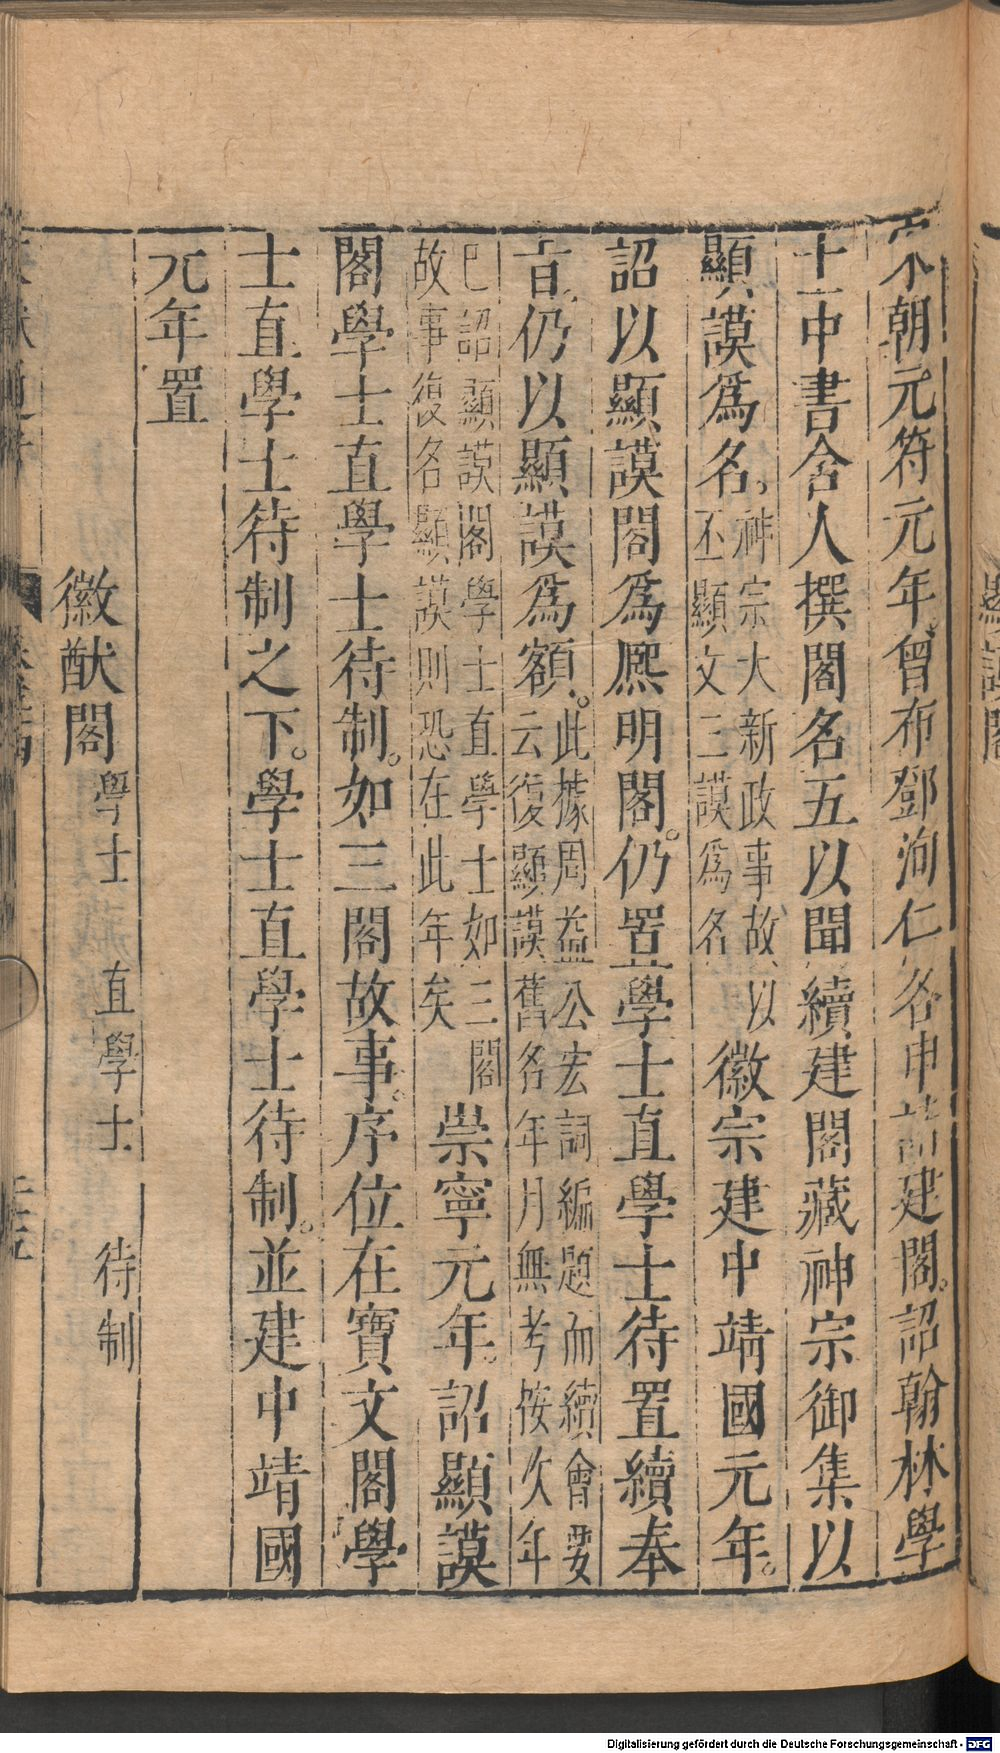 宋朝元符元年曾布鄧洵仁各申請建閣詔翰林學
士中書舍人撰閣名五以聞續建閣藏神宗御集以
顯謨爲名神宗大新政事故以丕顯文王謨爲名徽宗建中靖國元年
詔以顯謨閣爲熈明閣仍置學士直學士待置續奉
旨仍以顯謨爲額此據周益公宏詞編題而續會要云復顯謨舊名年月無考按次年
已詔顯謨閣學士直學士如三閣故事復名顯謨則恐在此年矣崇寧元年詔顯謨
閣學士直學士待制如三閣故事序位在寶文閣學
士直學士待制之下學士直學士待制並建中靖國
元年置
徽猷閣學士 直學士 待制
Digitalisierung gefördert durch die Deutsche Forschungsgemeinschaft - DFG